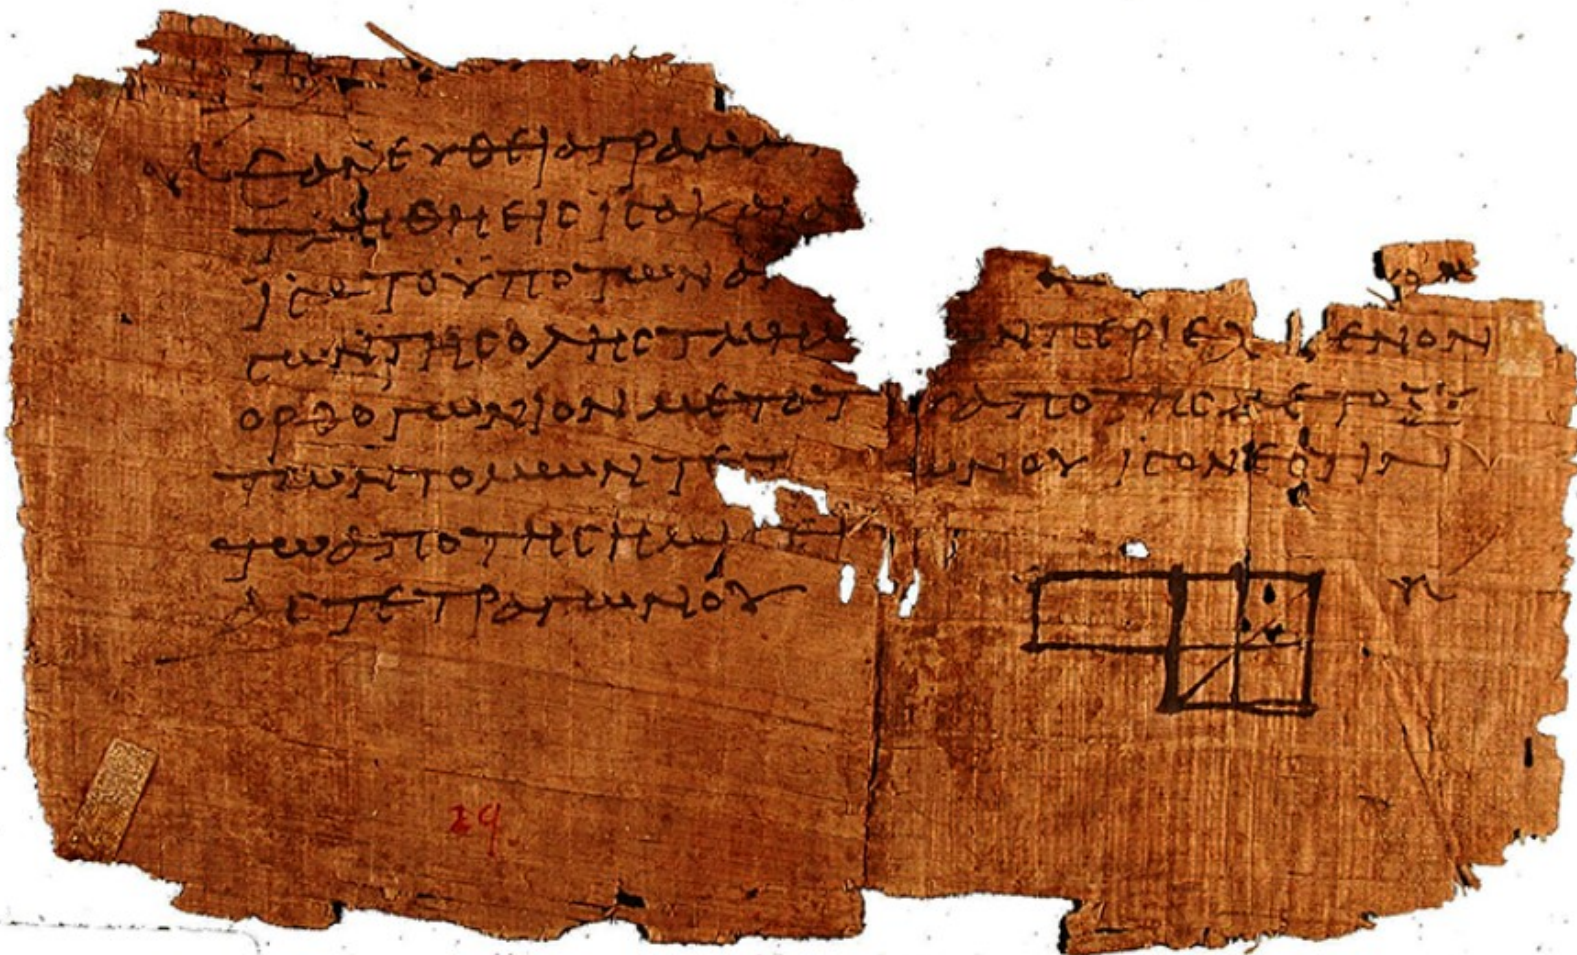 ΕΑΝ ΕΥΘΕΙΑ ΓΡΑΜΜ
ΤΜΗΘΗ ΕΙΣ ΙΣΑ ΚΑΙ
ΙΣΑ ΤΟ ΥΠΟ ΤΩΝ
ΣΩΝ ΤΗΣ ΟΛΗΣ ΤΜΗΜ ΩΝ ΠΕΡΙΕΧ ΜΕΝΟΝ
ΟΡΘΟΓΩΝΙΟΝ ΜΕΤΑ ΤΟΥ ΑΠΟ ΤΗΣ ΜΕΤΟΞΥ
ΤΩΝ ΤΟΜΩΝ ΤΕΤ ΩΝΟΥ ΙΣΟΝ ΕΣΤΙΝ
ΤΩ ΑΠΟ ΤΗΣ ΗΜΙΣΕΙ
ΑΣ ΤΕΤΡΑΓΩΝΟΥ
29